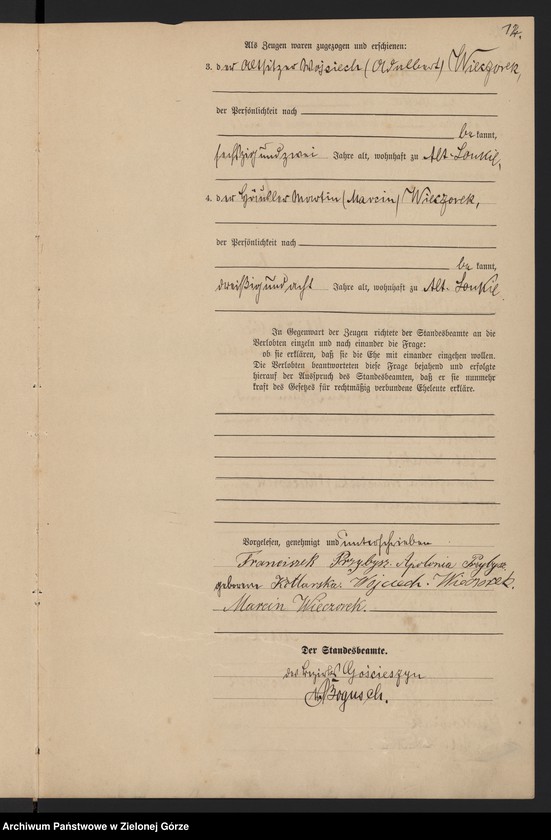 12.
Als Zeugen waren zugezogen und erschienen:
3. der Altsitzer Wojciech (Adalbert) Wieczorek,
der Persönlichkeit nach
be kannt,
sechszig und zwei Jahre alt, wohnhaft zu Alt-
4. der Häusler Martin (Marcin) Wieczorek,
der Persönlichkeit nach
be kannt,
dreißig und acht Jahre alt, wohnhaft zu Alt-
In Gegenwart der Zeugen richtete der Standesbeamte an die
Verlobten einzeln und nach einander die Frage:
ob sie erklären, daß sie die Ehe mit einander eingehen wollen.
Die Verlobten beantworteten diese Frage bejahend und erfolgte
hierauf der Ausspruch des Standesbeamten, daß er sie nunmehr
kraft des Gesetzes für rechtmäßig verbundene Eheleute erkläre.
Vorgelesen, genehmigt und unterschrieben
Franciszek Przybysz. Apolonia Przybysz
geborene Kotlarska. Wojciech Wieczorek.
Marcin Wieczorek.
Der Standesbeamte.
des Bezirks Gościeszyn
Bogusch.
Archiwum Państwowe w Zielonej Górze